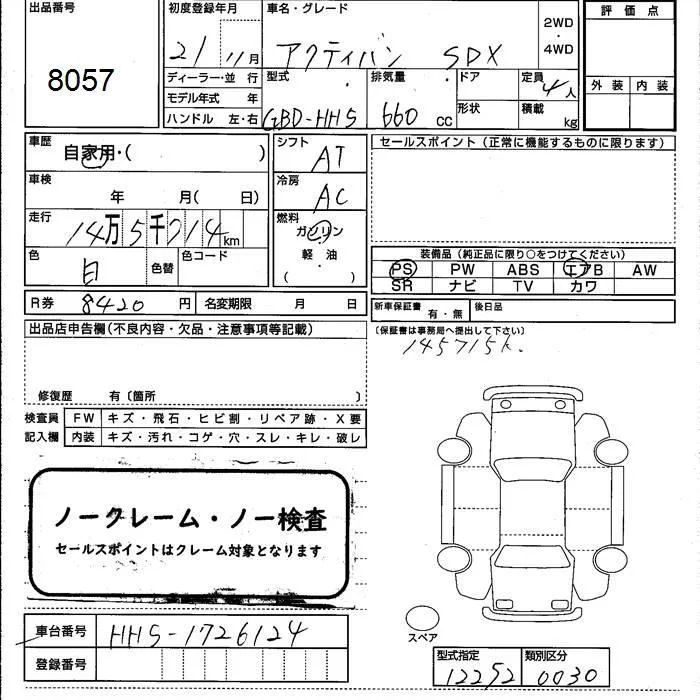 出品番号 初度登録年月 車名・グレード 評価点
8057 21 11月 アクティバン SDX 2WD・4WD
ディーラー・並行 型式 排気量 ドア 定員 4人 外装 内装
モデル年式 年 形状 積載 kg
ハンドル 左・右 GBD-HH5 660 CC
車歴 自家用・( ) シフト AT セールスポイント (正常に機能するものに限ります)
車検 年 月(日) 冷房 AC
走行 14万5千714km 燃料 ガソリン
軽油
( )
色 白 色替 色コード
装備品 (純正品に限り○をつけてください)
PS PW ABS エアB AW
SR ナビ TV カワ
R券 8420円 名変期限 月 日 新車保証書 有・無 後日品
出品店申告欄(不良内容・欠品・注意事項等記載) (保証書は事務局へ提出して下さい)
145715k.
修復歴 有〔箇所 〕
検査員 FW キズ・飛石・ヒビ割・リペア跡・X要
記入欄 内装 キズ・汚れ・コゲ・穴・スレ・キレ・破レ
ノークレーム・ノー検査
セールスポイントはクレーム対象となります
車台番号 HH5-1726124
スペア
登録番号
型式指定 類別区分
12252 0030